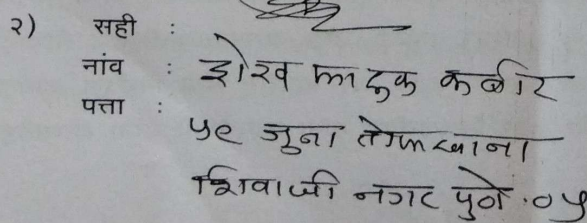 २) सही :
नांव : शेख फारुक कबीर
पत्ता : ५९ जुना तोफखाना
शिवाजी नगर पुणे.०५